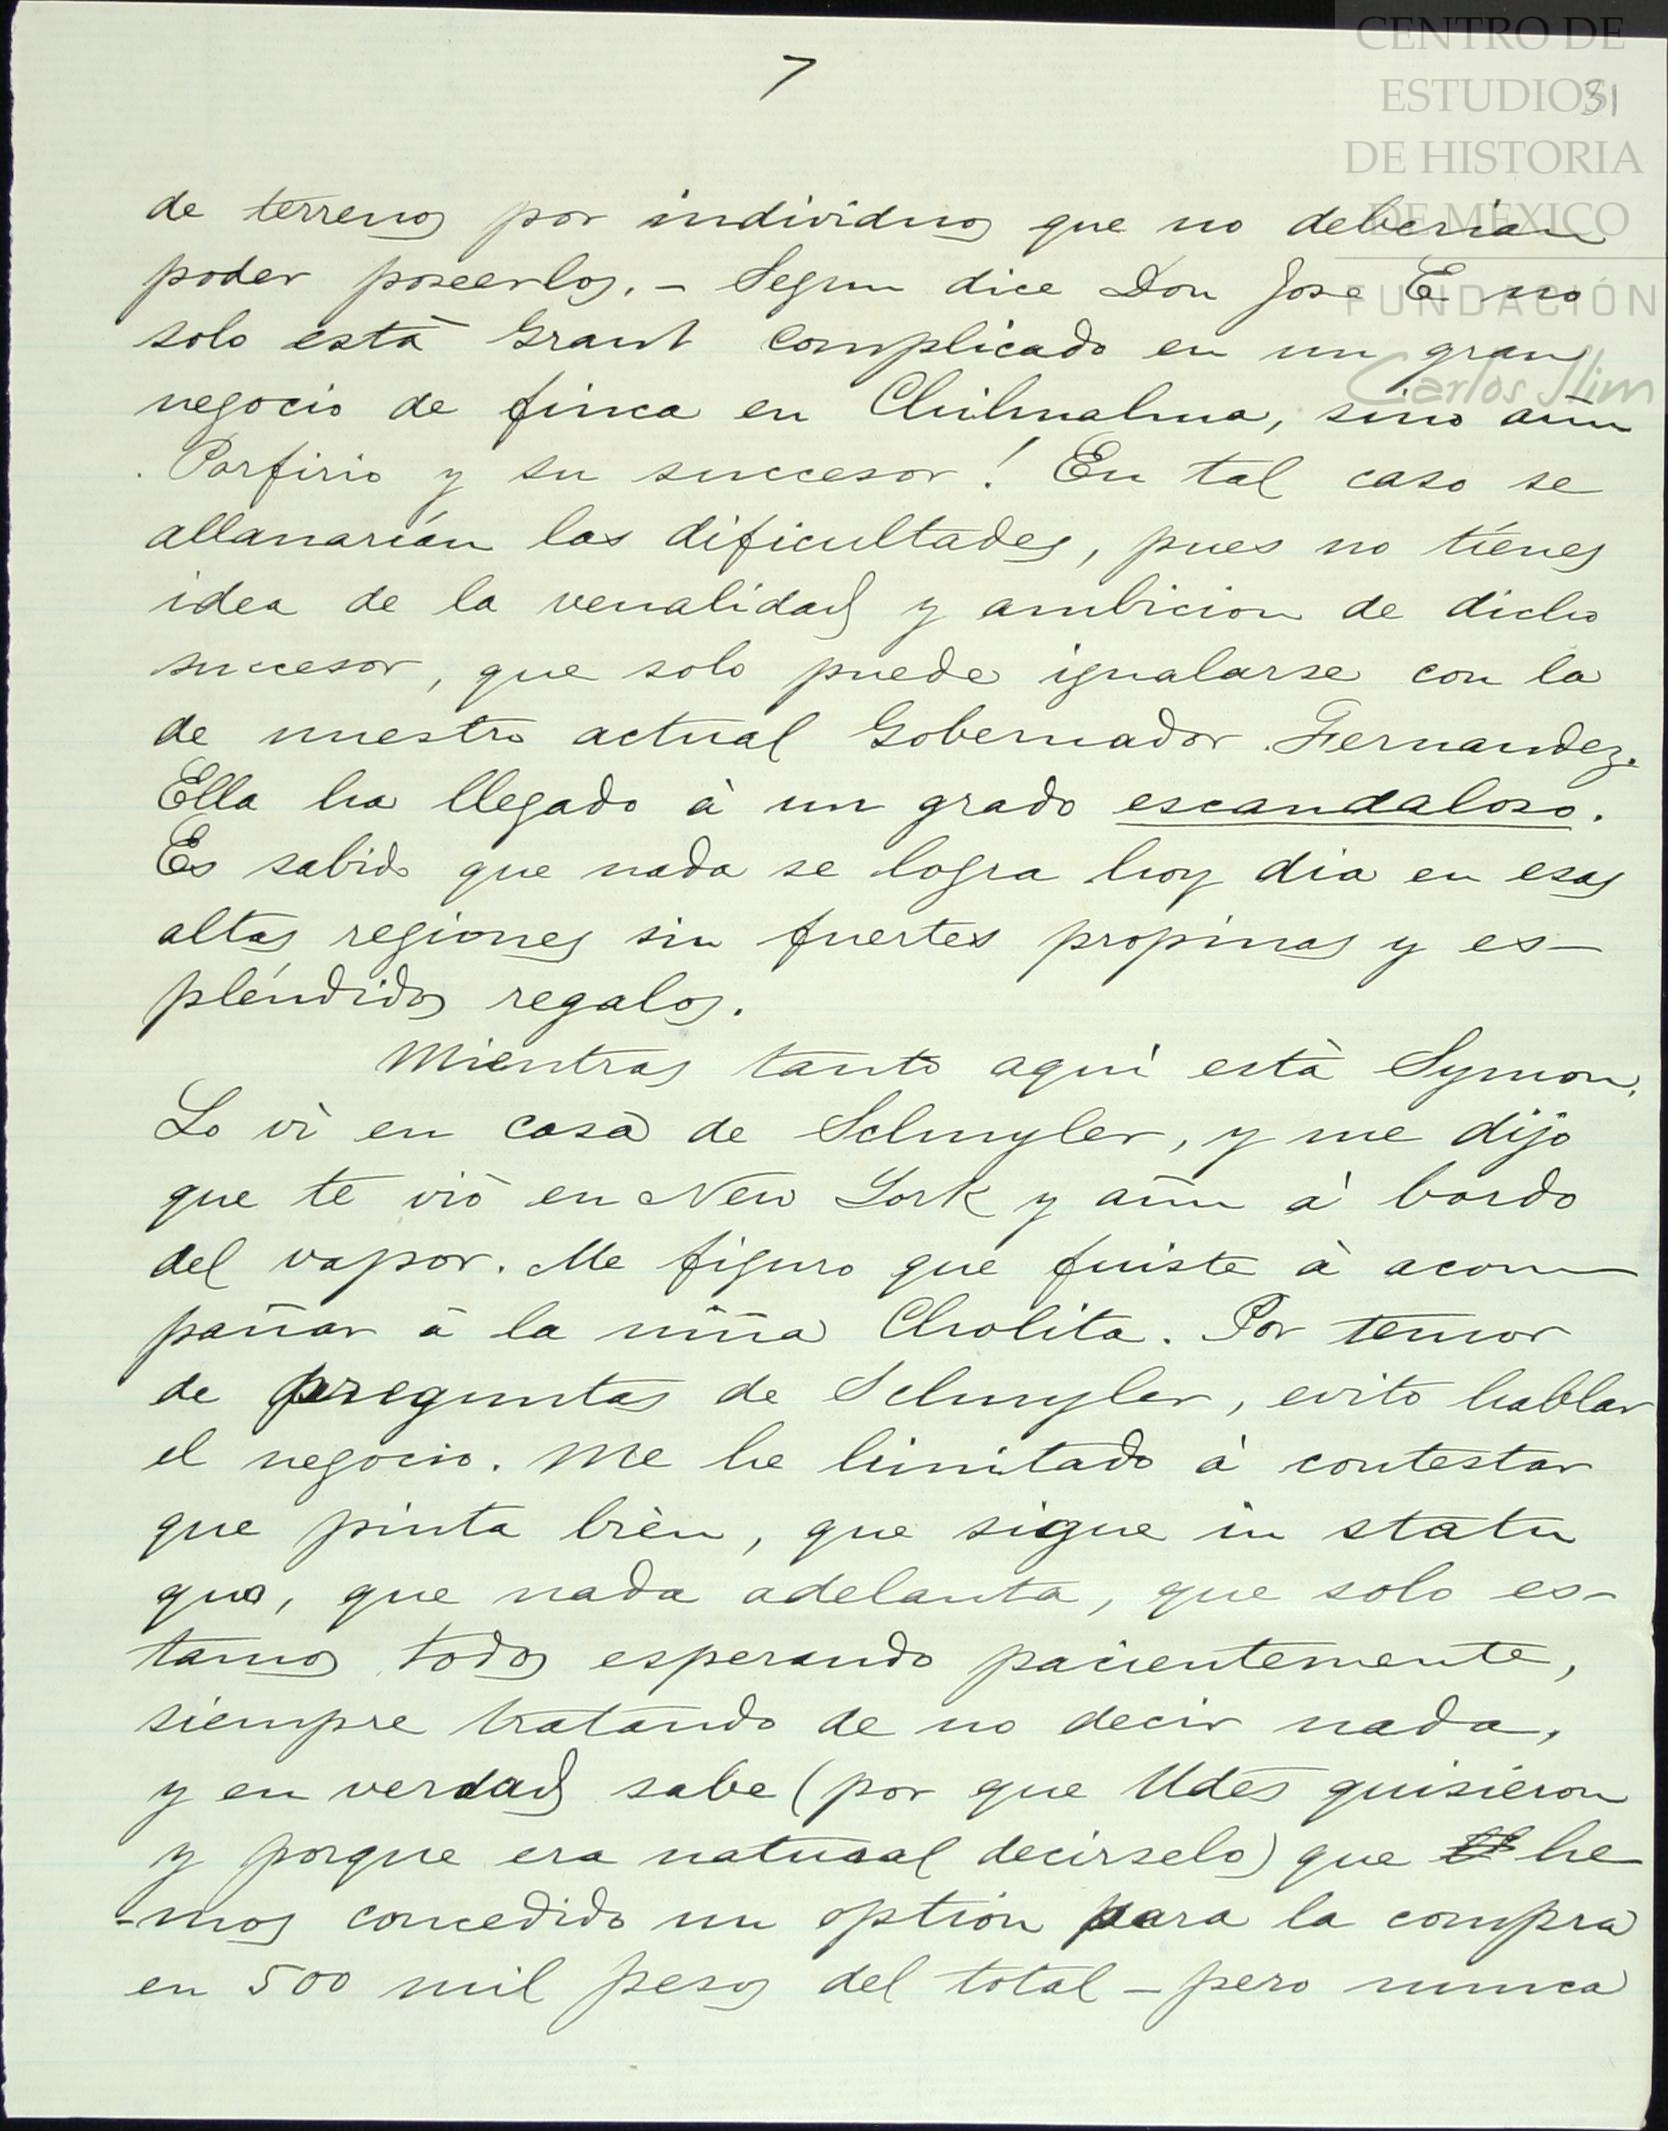 7
CENTRO DE
ESTUDIOS
31
DE HISTORIA
DE MÉXICO
FUNDACIÓN
Carlos Slim
de terrenos por individuos que no deberian
poder poseerlos. – Segun dice Don Jose E no
solo está Grant complicado en un gran
negocio de finca en Chihuahua, sino aún
Porfirio y su succesor! En tal caso se
allanarían las dificultades, pues no tienes
idea de la venalidad y ambicion de dicho
succesor, que solo puede igualarse con la
de nuestro actual Gobernador Fernandez.
Ella ha llegado à un grado escandaloso.
Es sabido que nada se logra hoy dia en esas
altas regiones sin fuertes propinas y es–
pléndidos regalos.
Mientras tanto aquí està Symon.
Lo vì en casa de Schuyler, y me dijo
que te viò en New York y aún à bordo
del vapor. Me figuro que fuiste à acom
pañar à la niña Cholita. Por temor
de preguntas de Schuyler, evito hablar
el negocio. Me he limitado à contestar
que pinta bièn, que sigue in statu
quo, que nada adelanta, que solo es–
tamos todos esperando pacientemente,
siempre tratando de no decir nada,
y en verdad sabe (por que Udes quisieron
y porque era natural decirselo) que he
-mos concedido un optión para la compra
en 500 mil pesos del total – pero nunca